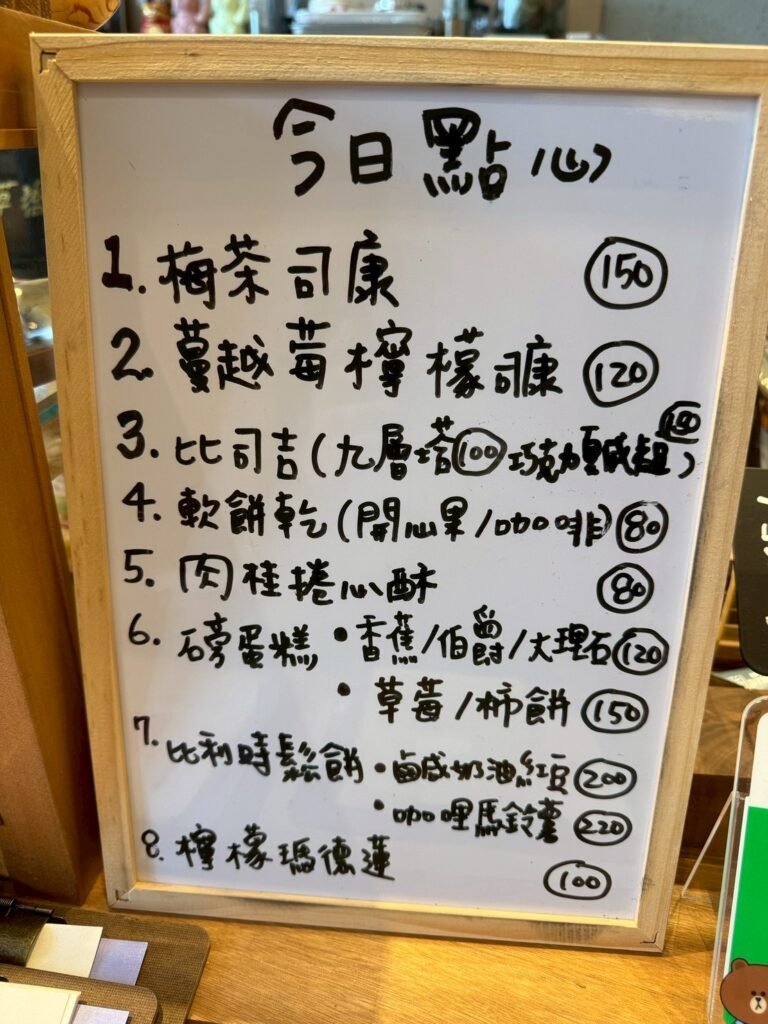 今日點心
1. 梅茶司康 150
2. 蔓越莓檸檬司康 120
3. 比司吉(九層塔100 巧克力
4. 軟餅乾(開心果/咖啡) 80
5. 肉桂捲心酥 80
6. 磅蛋糕 • 香蕉/伯爵/大理石 120
• 草莓/柿餅 150
7. 比利時鬆餅 • 鹹奶油紅豆 200
• 咖哩馬鈴薯 220
8. 檸檬瑪德蓮 100